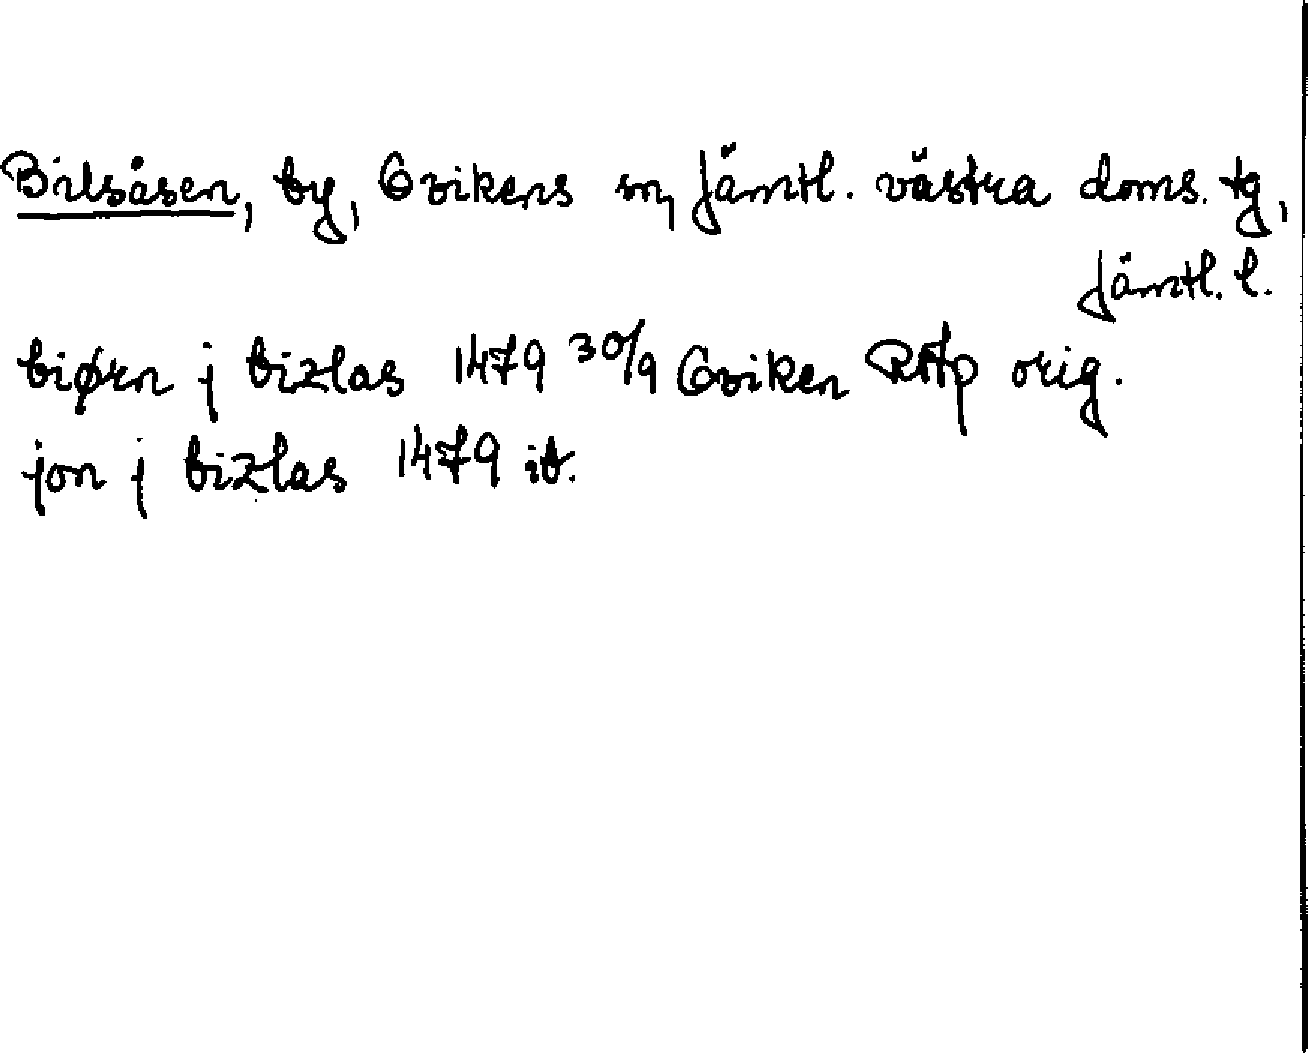 Bilsåsen, by, Ovikens sn, Jämtl. västra doms. tg,
Jämtl. l.
biørn j bizlas 1479 30/9 Oviken RAp orig.
jon j bizlas 1479 ib.